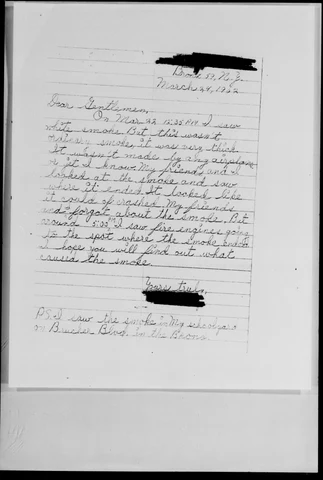 Bronx 59, N.Y.
March 24, 1966
Dear Gentlemen,
On Mar. 22, I saw
white smoke. But this wasn't
ordinary smoke, it was very thick
It wasn't made by any airplane
as far as I know. My friends and I
looked at the smoke and saw
where it ended. It looked like
it could of crashed. My friends
and I forgot about the smoke. But
around 5:00 I saw fire engines going
to the spot where the smoke ended.
I hope you will find out what
caused the smoke.
Yours truly,
P.S. I saw the smoke in My schoolyard
on Blvd. in the Bronx.